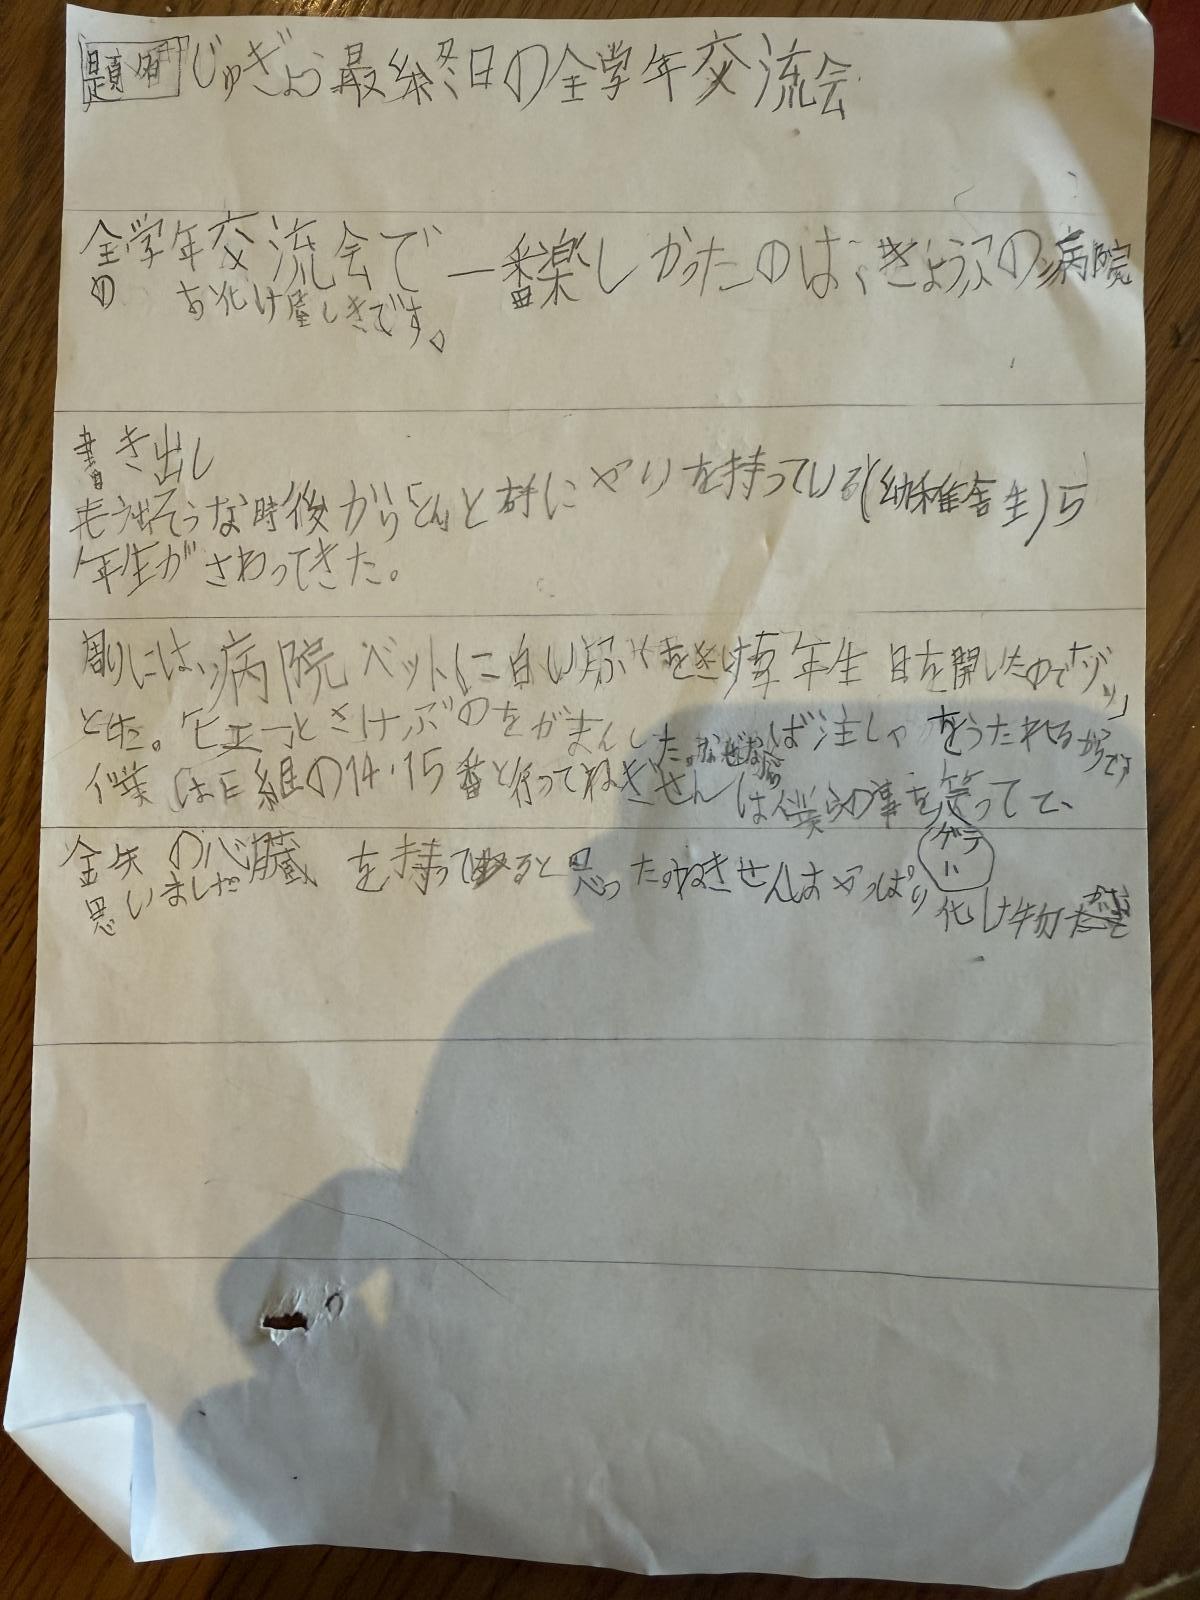 題名 じゅぎょう最終日の全学年交流会
全学年交流会で一番楽しかったのは、きょうふの病院
の お化け屋しきです。
書き出し
もう出そうな時後からどんと
やりを持っている(幼稚舎生)5
年生がさわってきた。
周りには、病院ベットに白い
年生 目を開いたので
と
さけぶのをがまんした。なぜならば注しゃをうたれるからです
僕はE組の14・15番と行ってねぎせんは僕らの事を笑ってて、
金矢の心臓を持ってると思ったのねぎせんはやっぱり
化け物だ
思いました